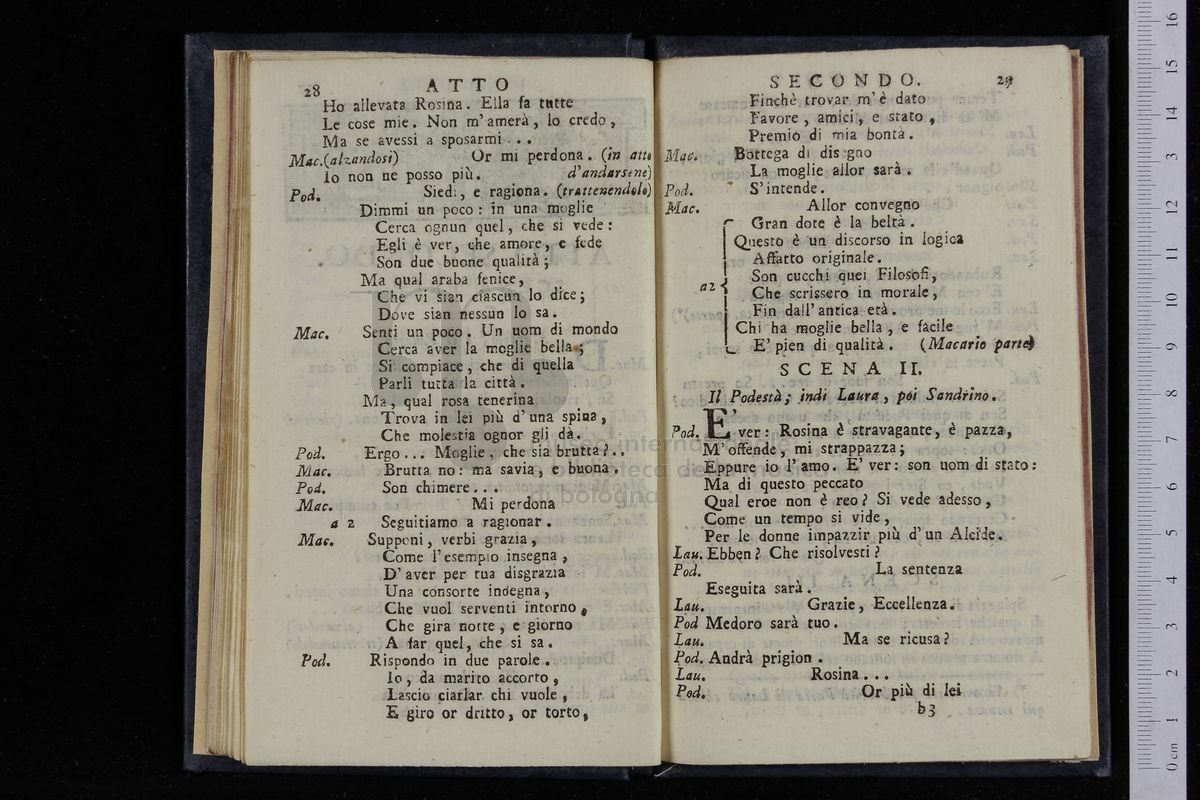 28 ATTO
Ho allevata Rosina. Ella fa tutte
Le cose mie. Non m'amerà, lo credo,
Ma se avessi a sposarmi ...
Mac. (alzandosi) Or mi perdona. (in atto
Io non ne posso più. d'andarsene)
Pod. Siedi, e ragiona. (trattenendolo)
Dimmi un poco: in una moglie
Cerca ognun quel, che si vede:
Egli è ver, che amore, e fede
Son due buone qualità;
Ma qual araba fenice,
Che vi sian ciascun lo dice;
Dove sian nessun lo sa.
Mac. Senti un poco. Un uom di mondo
Cerca aver la moglie bella;
Si compiace, che di quella
Parli tutta la città.
Ma, qual rosa tenerina
Trova in lei più d'una spina,
Che molestia ognor gli dà.
Pod. Ergo... Moglie, che sia brutta?..
Mac. Brutta no: ma savia, e buona.
Pod. Son chimere...
Mac. Mi perdona
a 2 Seguitiamo a ragionar.
Mac. Supponi, verbi grazia,
Come l'esempio insegna,
D'aver per tua disgrazia
Una consorte indegna,
Che vuol serventi intorno,
Che gira notte, e giorno
A far quel, che si sa.
Pod. Rispondo in due parole.
Io, da marito accorto,
Lascio ciarlar chi vuole,
E giro or dritto, or torto,
SECONDO. 29
Finchè trovar m'è dato
Favore, amici, e stato,
Premio di mia bontà.
Mac. Bottega di disegno
La moglie allor sarà.
Pod. S'intende.
Mac. Allor convegno
Gran dote è la beltà.
Questo è un discorso in logica
Affatto originale.
Son cucchi quei Filosofi,
a2 Che scrissero in morale,
Fin dall'antica età.
Chi ha moglie bella, e facile
E' pien di qualità. (Macario parte)
SCENA II.
Il Podestà; indi Laura, poi Sandrino.
Pod. E' ver: Rosina è stravagante, è pazza,
M'offende, mi strappazza;
Eppure io l'amo. E' ver: son uom di stato:
Ma di questo peccato
Qual eroe non è reo? Si vede adesso,
Come un tempo si vide,
Per le donne impazzir più d'un Alcide.
Lau. Ebben? Che risolvesti?
Pod. La sentenza
Eseguita sarà.
Lau. Grazie, Eccellenza.
Pod Medoro sarà tuo.
Lau. Ma se ricusa?
Pod. Andrà prigion.
Lau. Rosina...
Pod. Or più di lei
b3
museo internazionale
biblioteca della musica
di bologna
0 cm 1 2 3 4 5 6 7 8 9 10 11 12 13 14 15 16